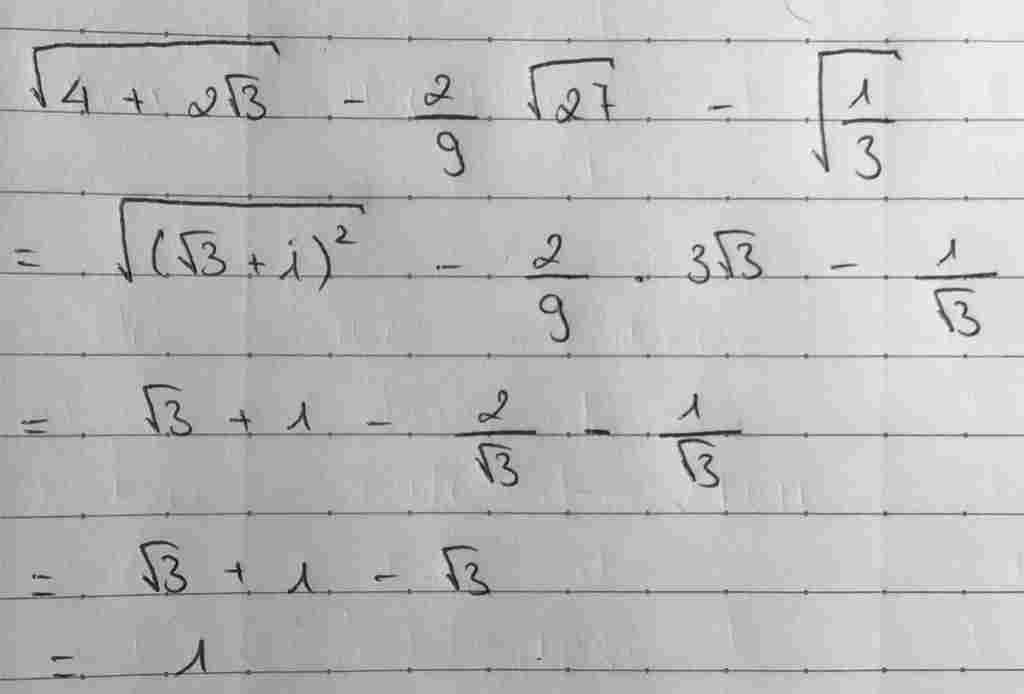 √(4 + 2√3) - 2/9 √27 - √(1/3)
= √((√3 + i)²) - 2/9 . 3√3 - 1/√3
= √3 + 1 - 2/√3 - 1/√3
= √3 + 1 - √3
= 1